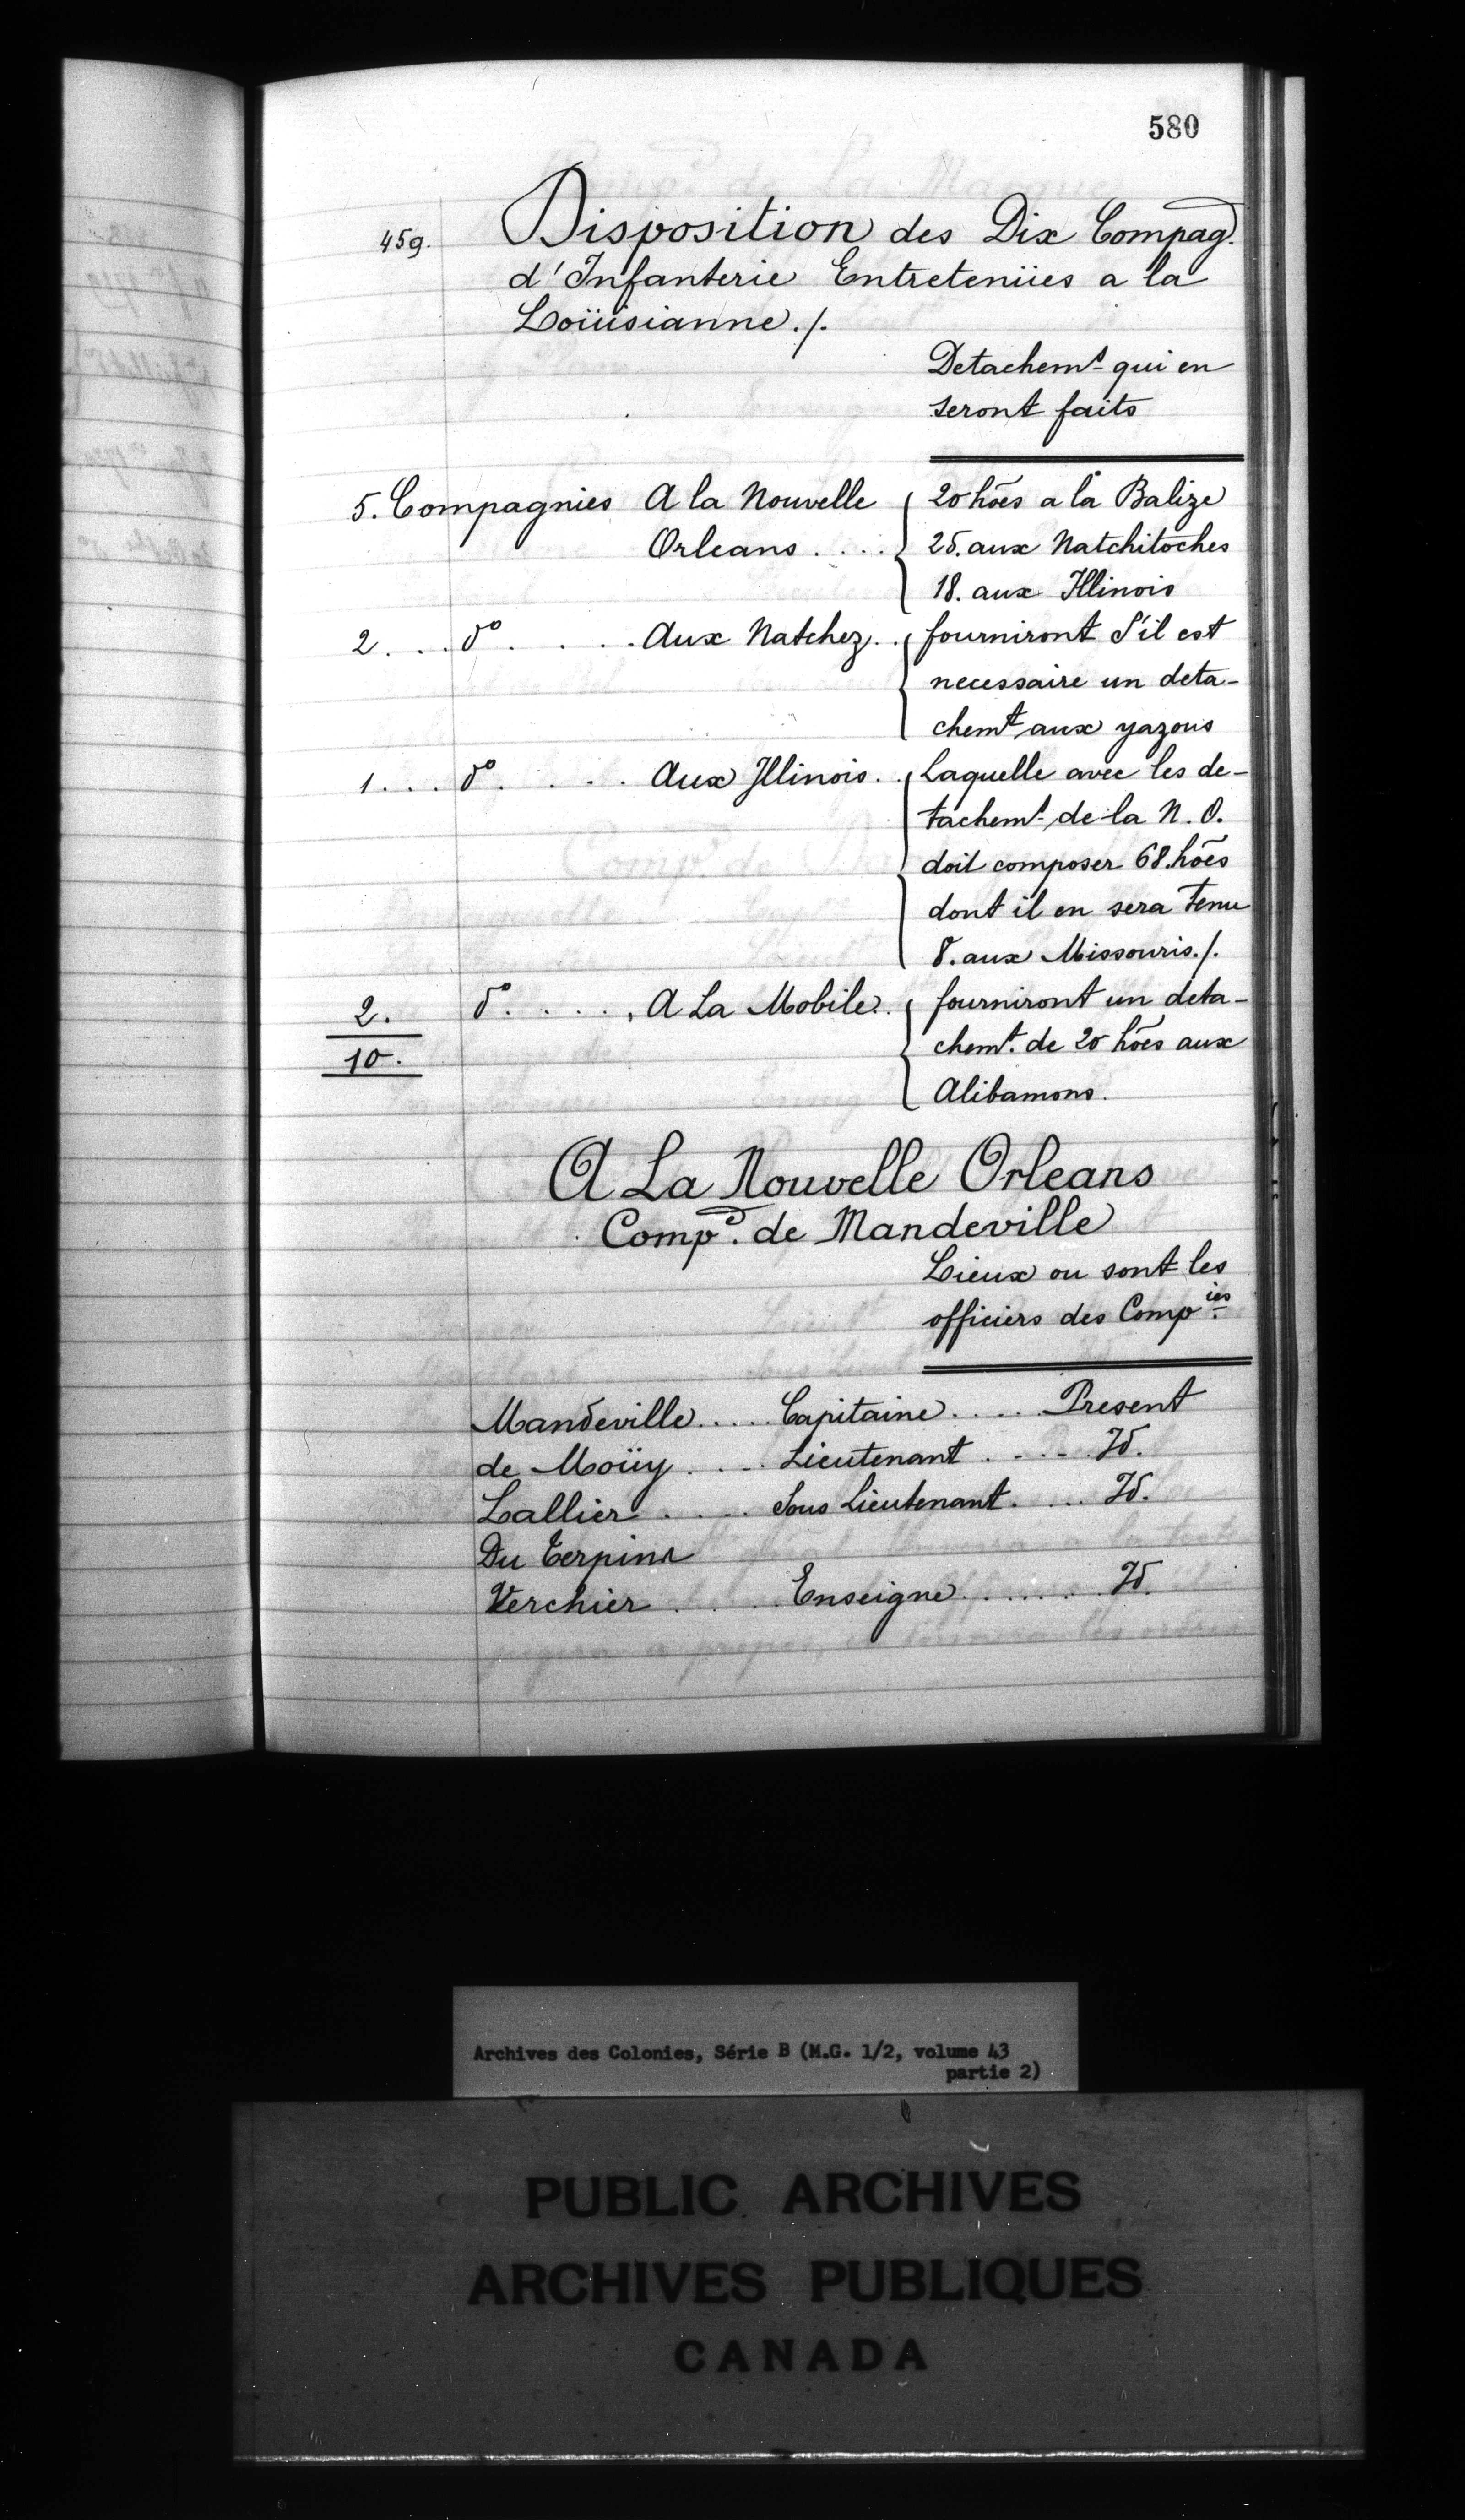 580
459. Disposition des Dix Compag.
d'Infanterie Entreteniies a la
Loüisianne ./.
Detachem.t qui en
seront faits
5. Compagnies A la Nouvelle { 20 hões a la Balize
Orleans .... 25. aux Natchitoches
18. aux Illinois
2 ... do .... Aux Natchez .. { fourniront S'il est
necessaire un deta-
chemt aux yazous
1 ... do .... Aux Illinois .. { Laquelle avec les de-
tachemt de la N. O.
doit composer 68. hões
dont il en sera tenu
8. aux Missouris ./.
2. do .... A La Mobile .. { fourniront un deta-
10. chemt. de 20 hões aux
Alibamons.
A La Nouvelle Orleans
Comp.e de Mandeville
Lieux ou sont les
officiers des Comp.ies
Mandeville .... Capitaine .... Present
de Moüy .... Lieutenant .... Id.
Lallier .... Sous Lieutenant .... Id.
Du Terpina
Verchier .... Enseigne .... Id.
Archives des Colonies, Série B (M.G. 1/2, volume 43
partie 2)
PUBLIC ARCHIVES
ARCHIVES PUBLIQUES
CANADA